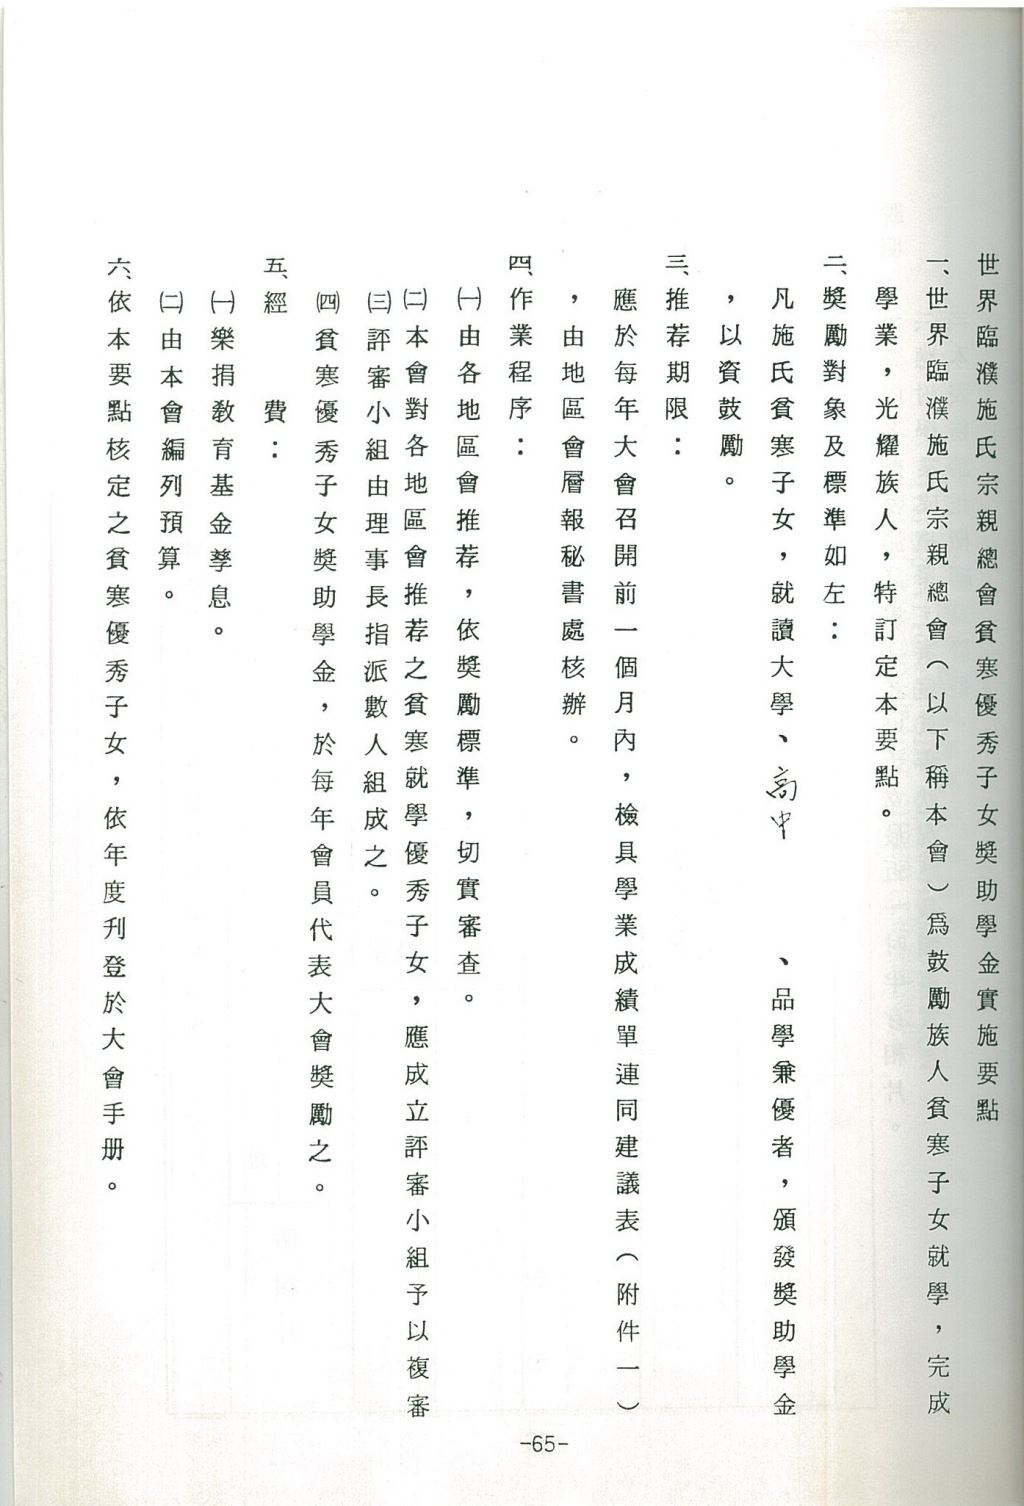 世界臨濮施氏宗親總會貧寒優秀子女獎助學金實施要點
一、世界臨濮施氏宗親總會（以下稱本會）爲鼓勵族人貧寒子女就學，完成
學業，光耀族人，特訂定本要點。
二、獎勵對象及標準如左：
凡施氏貧寒子女，就讀大學、高中、品學兼優者，頒發獎助學金
，以資鼓勵。
三、推荐期限：
應於每年大會召開前一個月內，檢具學業成績單連同建議表（附件一）
，由地區會層報秘書處核辦。
四、作業程序：
㈠由各地區會推荐，依獎勵標準，切實審查。
㈡本會對各地區會推荐之貧寒就學優秀子女，應成立評審小組予以複審
㈢評審小組由理事長指派數人組成之。
㈣貧寒優秀子女獎助學金，於每年會員代表大會獎勵之。
五、經　　費：
㈠樂捐教育基金孳息。
㈡由本會編列預算。
六、依本要點核定之貧寒優秀子女，依年度刋登於大會手册。
-65-